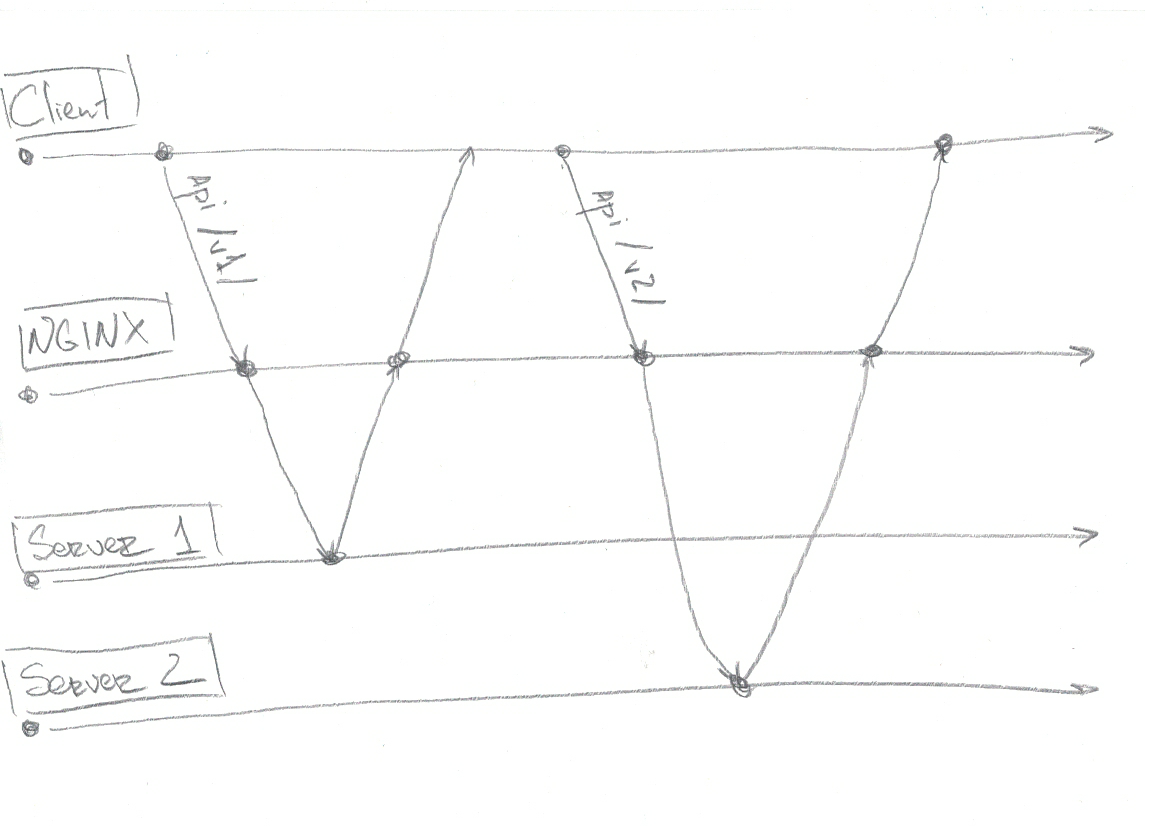 Client
Api /v1/
Api /v2/
NGINX
Server 1
Server 2